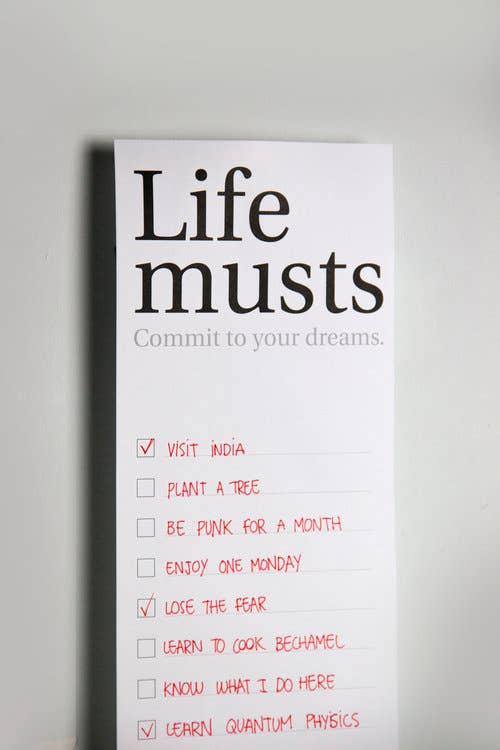 Life
musts
Commit to your dreams.
VISIT INDIA
PLANT A TREE
BE PUNK FOR A MONTH
ENJOY ONE MONDAY
LOSE THE FEAR
LEARN TO COOK BECHAMEL
KNOW WHAT I DO HERE
LEARN QUANTUM PHYISICS